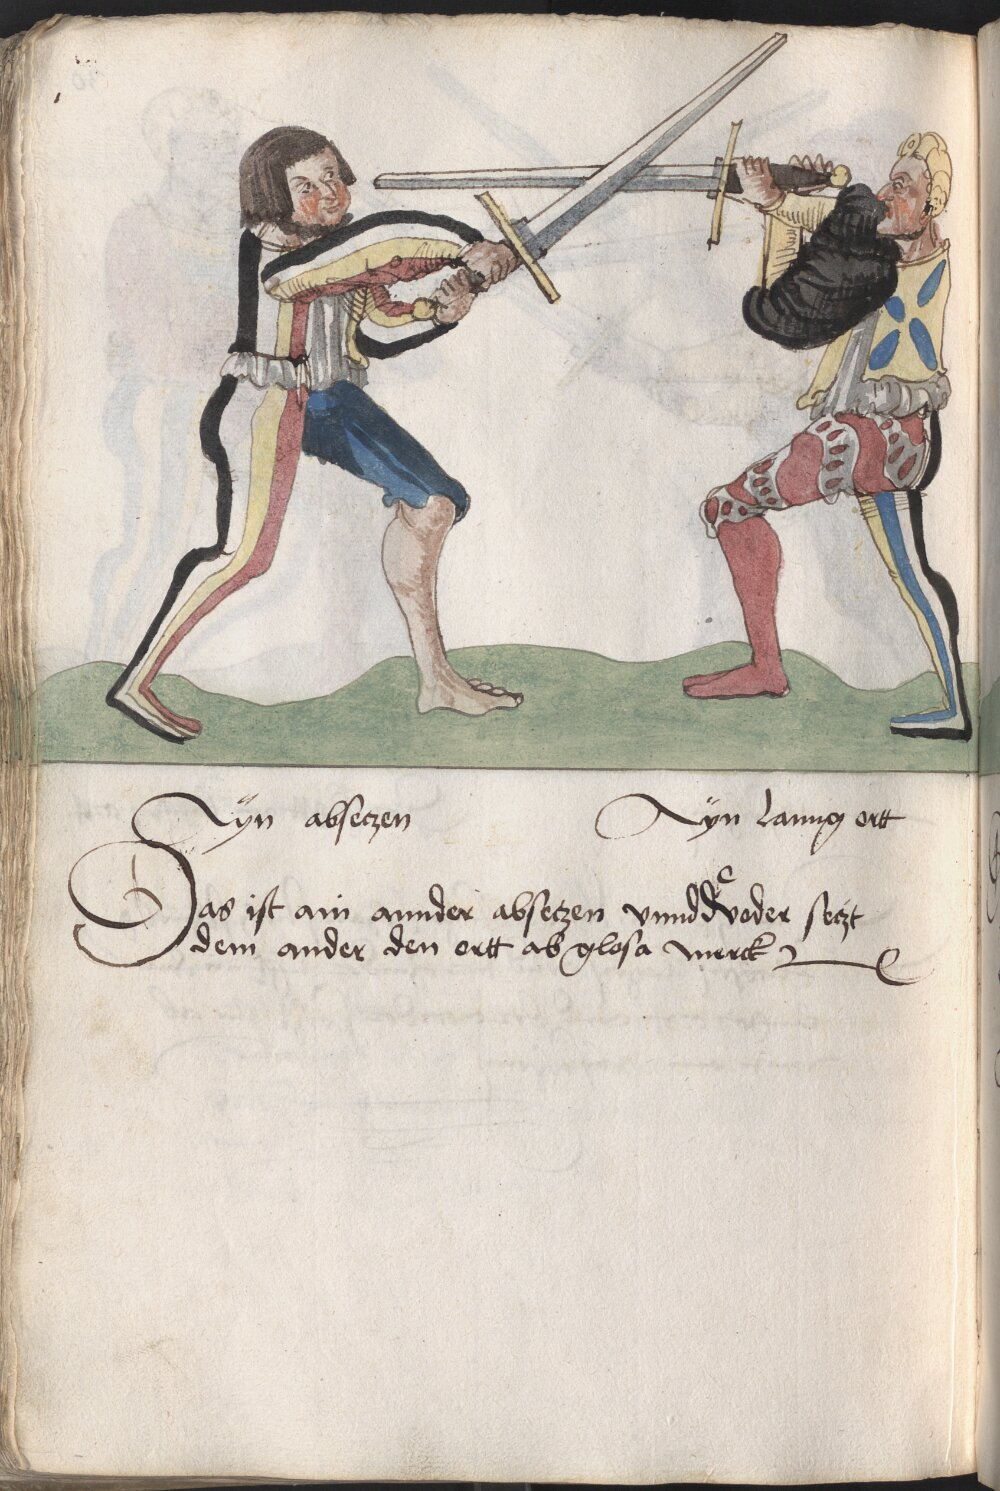 Ayn absetzen
Ayn lanng ortt
Das ist ain annder absetzen vnnd
dem ander den ortt ab glosa merck